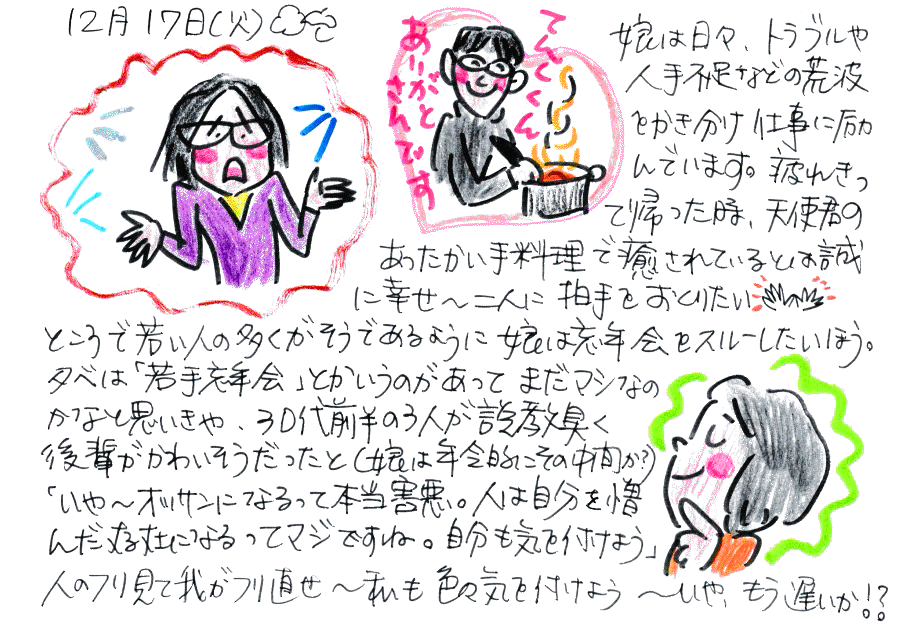 12月17日(火)
てんくくん
ありがと
さんです
娘は日々、トラブルや
人手不足などの荒波
をかき分け仕事に励
んでいます。疲れきっ
て帰った時、天使君の
あったかい手料理で癒されているとは誠
に幸せ〜二人に拍手をおくりたい
ところで若い人の多くがそうであるように娘は忘年会をスルーしたいほう。
夕べは「若手忘年会」とかいうのがあってまだマシなの
かなと思いきや、30代前半の3人が説教臭く
後輩がかわいそうだったと(娘は年令的にその中間か?)
「いや〜オッサンになるって本当害悪。人は自分を憎
んだ になるってマジですね。自分も気を付けよう」
人のフリ見て我がフリ直せ〜私も色々気を付けよう〜いや、もう遅いか!?